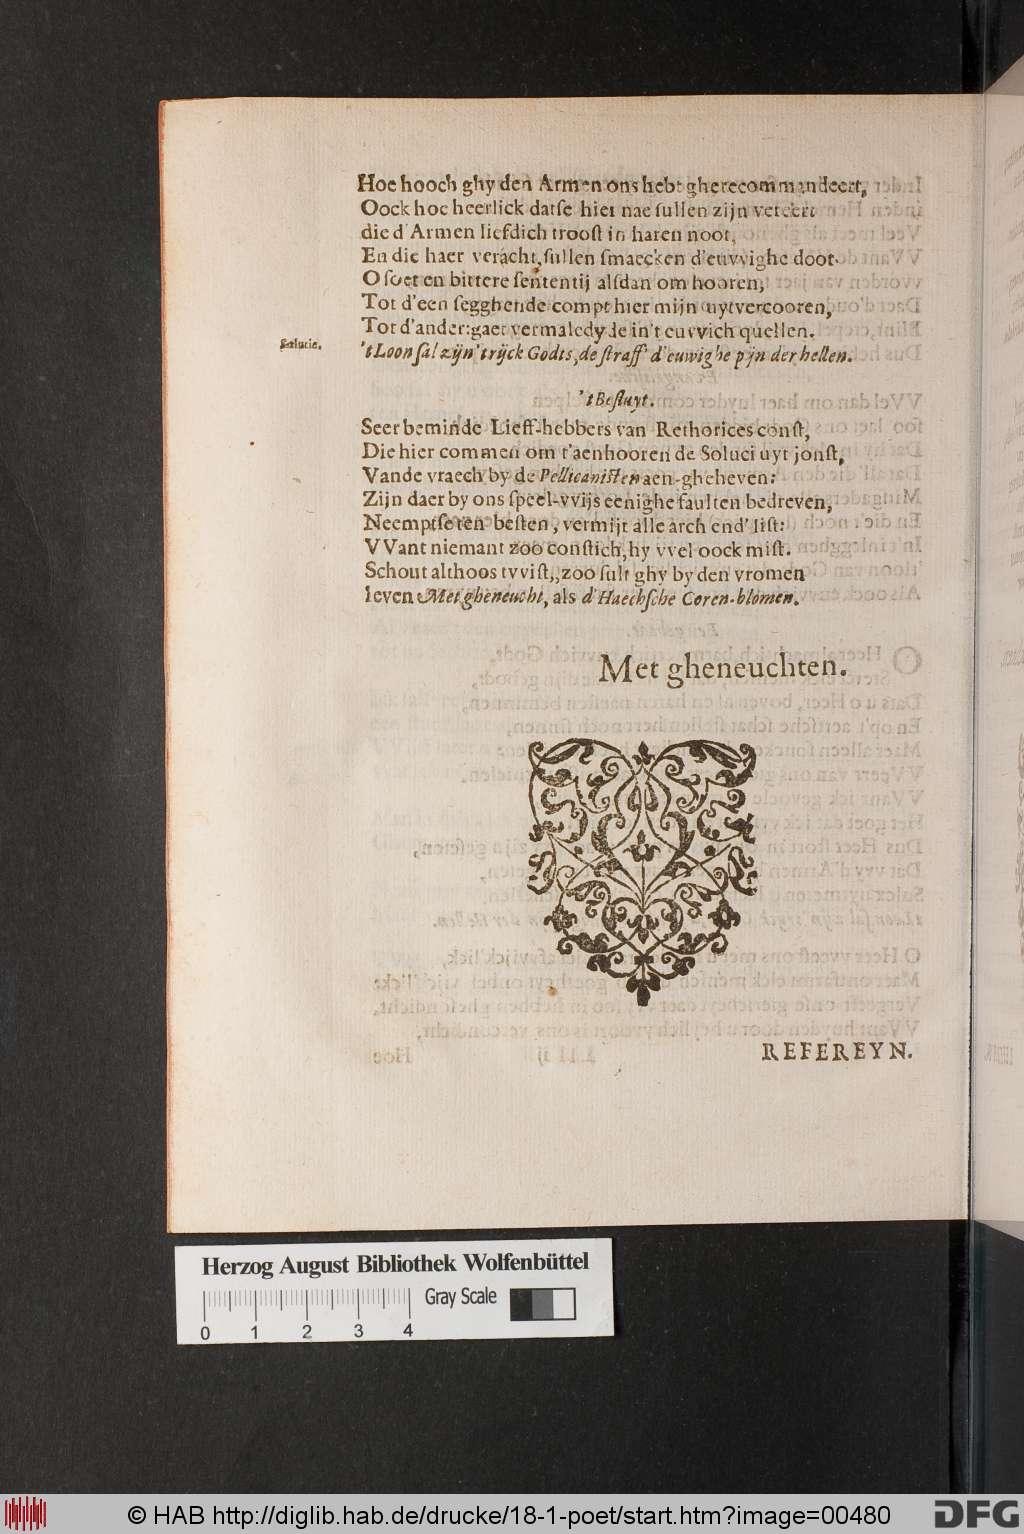 Hoe hooch ghy den Armen ons hebt gherecommandeert,
Oock hoe heerlick datse hier nae sullen zijn vereert
die d'Armen liefdich troost in haren noot,
En die haer veracht, sullen smaecken d'euvvighe doot.
O soet en bittere sententij alsdan om hooren,
Tot d'een segghende compt hier mijn uytvercooren,
Tot d'ander: gaet vermaledyde in't euvvich quellen.
Solutie.
't Loon sal zijn 'trijck Godts, de straff' d'euwighe pijn der hellen.
't Besluyt.
Seer beminde Lieff-hebbers van Rethorices const,
Die hier commen om t'aenhooren de Soluci uyt jonst,
Vande vraech by de Pellicanisten aen-gheheven:
Zijn daer by ons speel-vvijs eenighe faulten bedreven,
Neemptse ten besten, vermijt alle arch end' list:
VVant niemant zoo constich, hy vvel oock mist.
Schout althoos tvvist,, zoo sult ghy by den vromen
leven Met gheneucht, als d'Haechsche Coren-blomen.
Met gheneuchten.
REFEREYN.
Herzog August Bibliothek Wolfenbüttel
Gray Scale
0 1 2 3 4
© HAB http://diglib.hab.de/drucke/18-1-poet/start.htm?image=00480
DFG